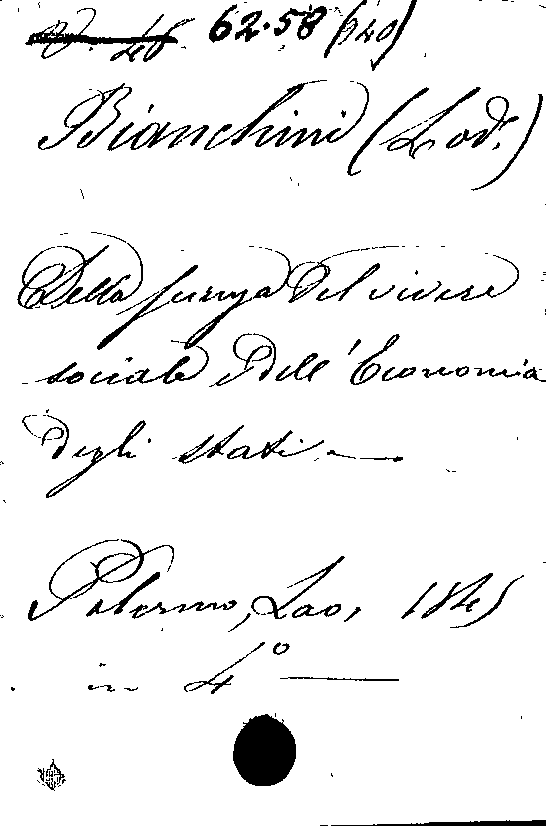 62.58 (140)
Bianchini (Lod.)
Della scienza del vivere
sociale e dell'Economia
degli stati. —
Palermo, Lao, 1845
in 4° —